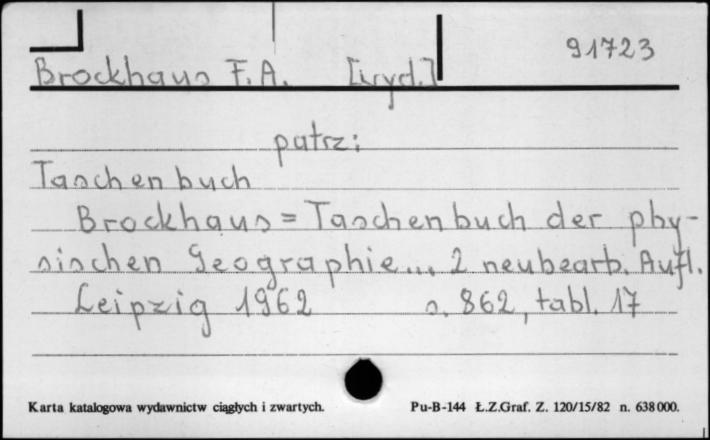 91723
Brockhaus F.A. [wyd.]
patrz:
Taschenbuch
Brockhaus = Taschenbuch der phy-
sischen Geographie... 2 neubearb. Aufl.
Leipzig 1962 s. 862, tabl. 17
Karta katalogowa wydawnictw ciągłych i zwartych. Pu-B-144 Ł.Z.Graf. Z. 120/15/82 n. 638000.